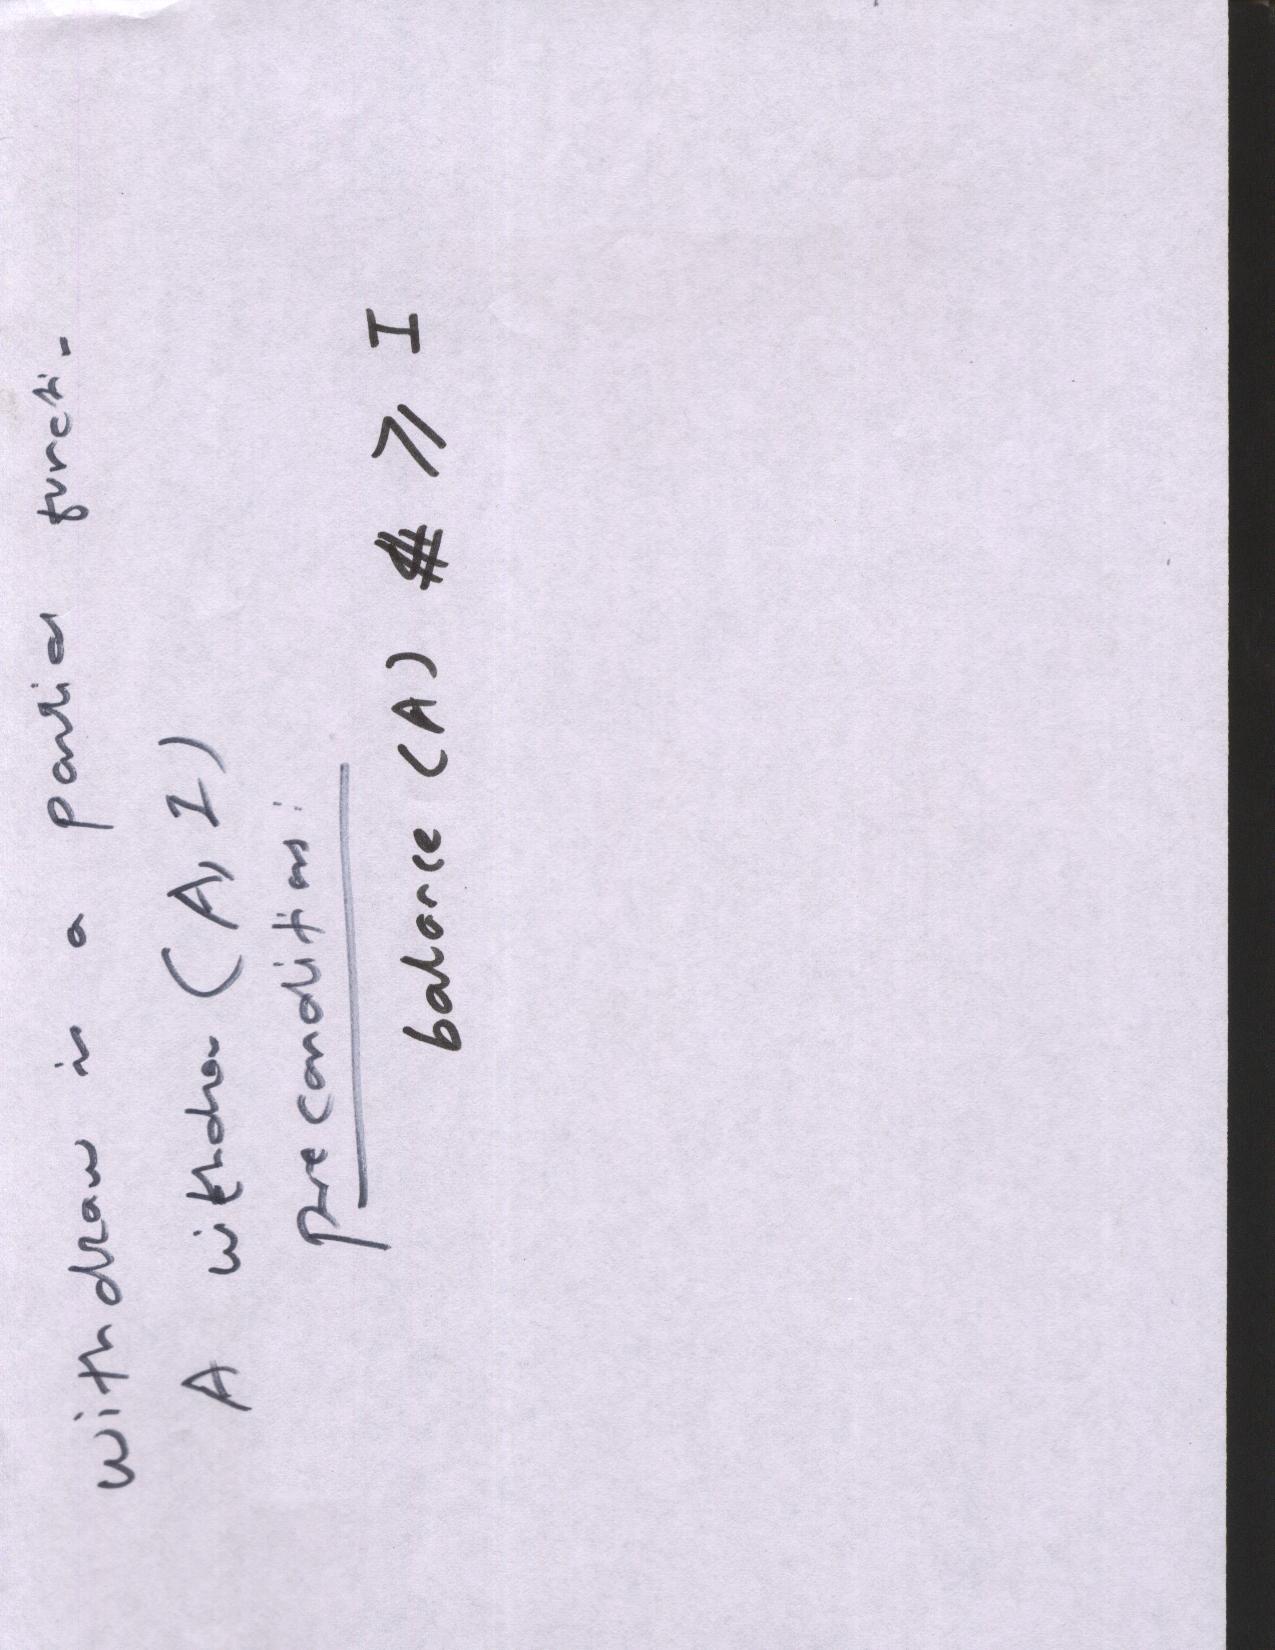 withdraw is a partial functi-
A withdra (A, I)
precondition:
balance (A) ≥ I